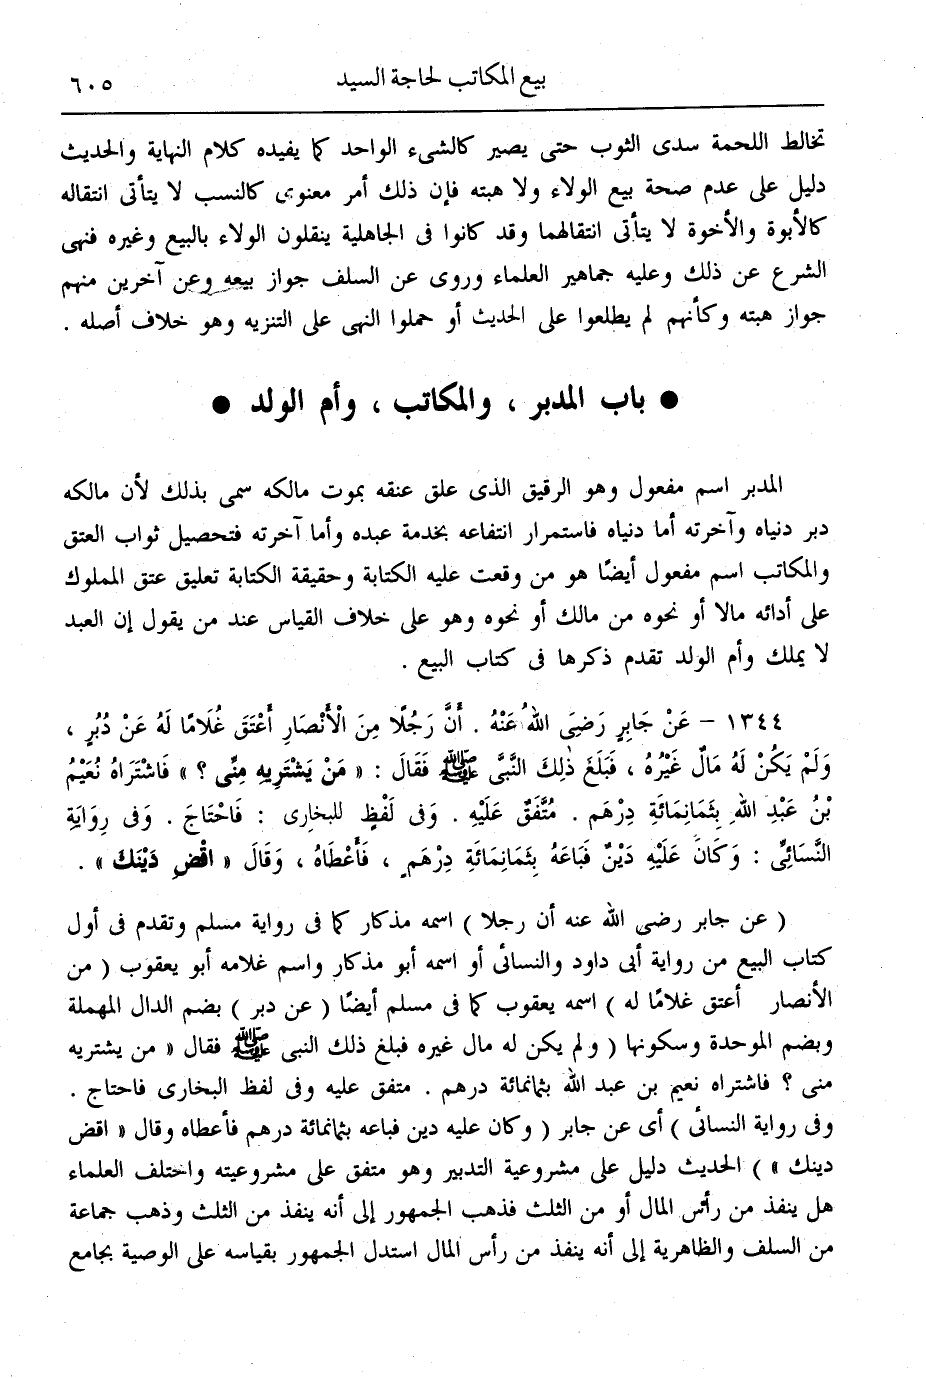 بيع المكاتب لحاجة السيد ٦٠٥
تخالط اللحمة سدى الثوب حتى يصير كالشىء الواحد كما يفيده كلام النهاية والحديث
دليل على عدم صحة بيع الولاء ولا هبته فإن ذلك أمر معنوى كالنسب لا يتأتى انتقاله
كالأبوة والأخوة لا يتأتى انتقالهما وقد كانوا فى الجاهلية ينقلون الولاء بالبيع وغيره فنهى
الشرع عن ذلك وعليه جماهير العلماء وروى عن السلف جواز بيعه وعن آخرين منهم
جواز هبته وكأنهم لم يطلعوا على الحديث أو حملوا النهى على التنزيه وهو خلاف أصله .
● باب المدبر ، والمكاتب ، وأم الولد ●
المدبر اسم مفعول وهو الرقيق الذى علق عنقه بموت مالكه سمى بذلك لأن مالكه
دبر دنياه وآخرته أما دنياه فاستمرار انتفاعه بخدمة عبده وأما آخرته فتحصيل ثواب العتق
والمكاتب اسم مفعول أيضًا هو من وقعت عليه الكتابة وحقيقة الكتابة تعليق عتق المملوك
على أدائه مالا أو نحوه من مالك أو نحوه وهو على خلاف القياس عند من يقول إن العبد
لا يملك وأم الولد تقدم ذكرها فى كتاب البيع .
١٣٤٤ – عَنْ جَابِرٍ رَضِىَ اللهُ عَنْهُ . أَنَّ رَجُلًا مِنَ الْأَنْصَارِ أَعْتَقَ غُلَامًا لَهُ عَنْ دُبُرٍ ،
وَلَمْ يَكُنْ لَهُ مَالٌ غَيْرُهُ ، فَبَلَغَ ذٰلِكَ النَّبِىَّ ﷺ فَقَالَ : « مَنْ يَشْتَرِيهِ مِنِّى ؟ » فَاشْتَرَاهُ نُعَيْمُ
بْنُ عَبْدِ اللهِ بِثَمَانِمَائَةِ دِرْهَمٍ . مُتَّفَقٌ عَلَيْهِ . وَفى لَفْظٍ للبخارى : فَاحْتَاجَ . وَفى رِوَايَةِ
النَّسَائِىِّ : وَكَانَ عَلَيْهِ دَيْنٌ فَبَاعَهُ بِثَمَانِمَائَةِ دِرْهَمٍ ، فَأَعْطَاهُ ، وَقَالَ « اقْضِ دَيْنَكَ » .
( عن جابر رضى الله عنه أن رجلا ) اسمه مذكار كما فى رواية مسلم وتقدم فى أول
كتاب البيع من رواية أبى داود والنسائى أو اسمه أبو مذكار واسم غلامه أبو يعقوب ( من
الأنصار أعتق غلامًا له ) اسمه يعقوب كما فى مسلم أيضًا ( عن دبر ) بضم الدال المهملة
وبضم الموحدة وسكونها ( ولم يكن له مال غيره فبلغ ذلك النبى ﷺ فقال « من يشتريه
منى ؟ فاشتراه نعيم بن عبد الله بثمانمائة درهم . متفق عليه وفى لفظ البخارى فاحتاج .
وفى رواية النسائى ) أى عن جابر ( وكان عليه دين فباعه بثمانمائة درهم فأعطاه وقال « اقض
دينك » ) الحديث دليل على مشروعية التدبير وهو متفق على مشروعيته واختلف العلماء
هل ينفذ من رأس المال أو من الثلث فذهب الجمهور إلى أنه ينفذ من الثلث وذهب جماعة
من السلف والظاهرية إلى أنه ينفذ من رأس المال استدل الجمهور بقياسه على الوصية بجامع